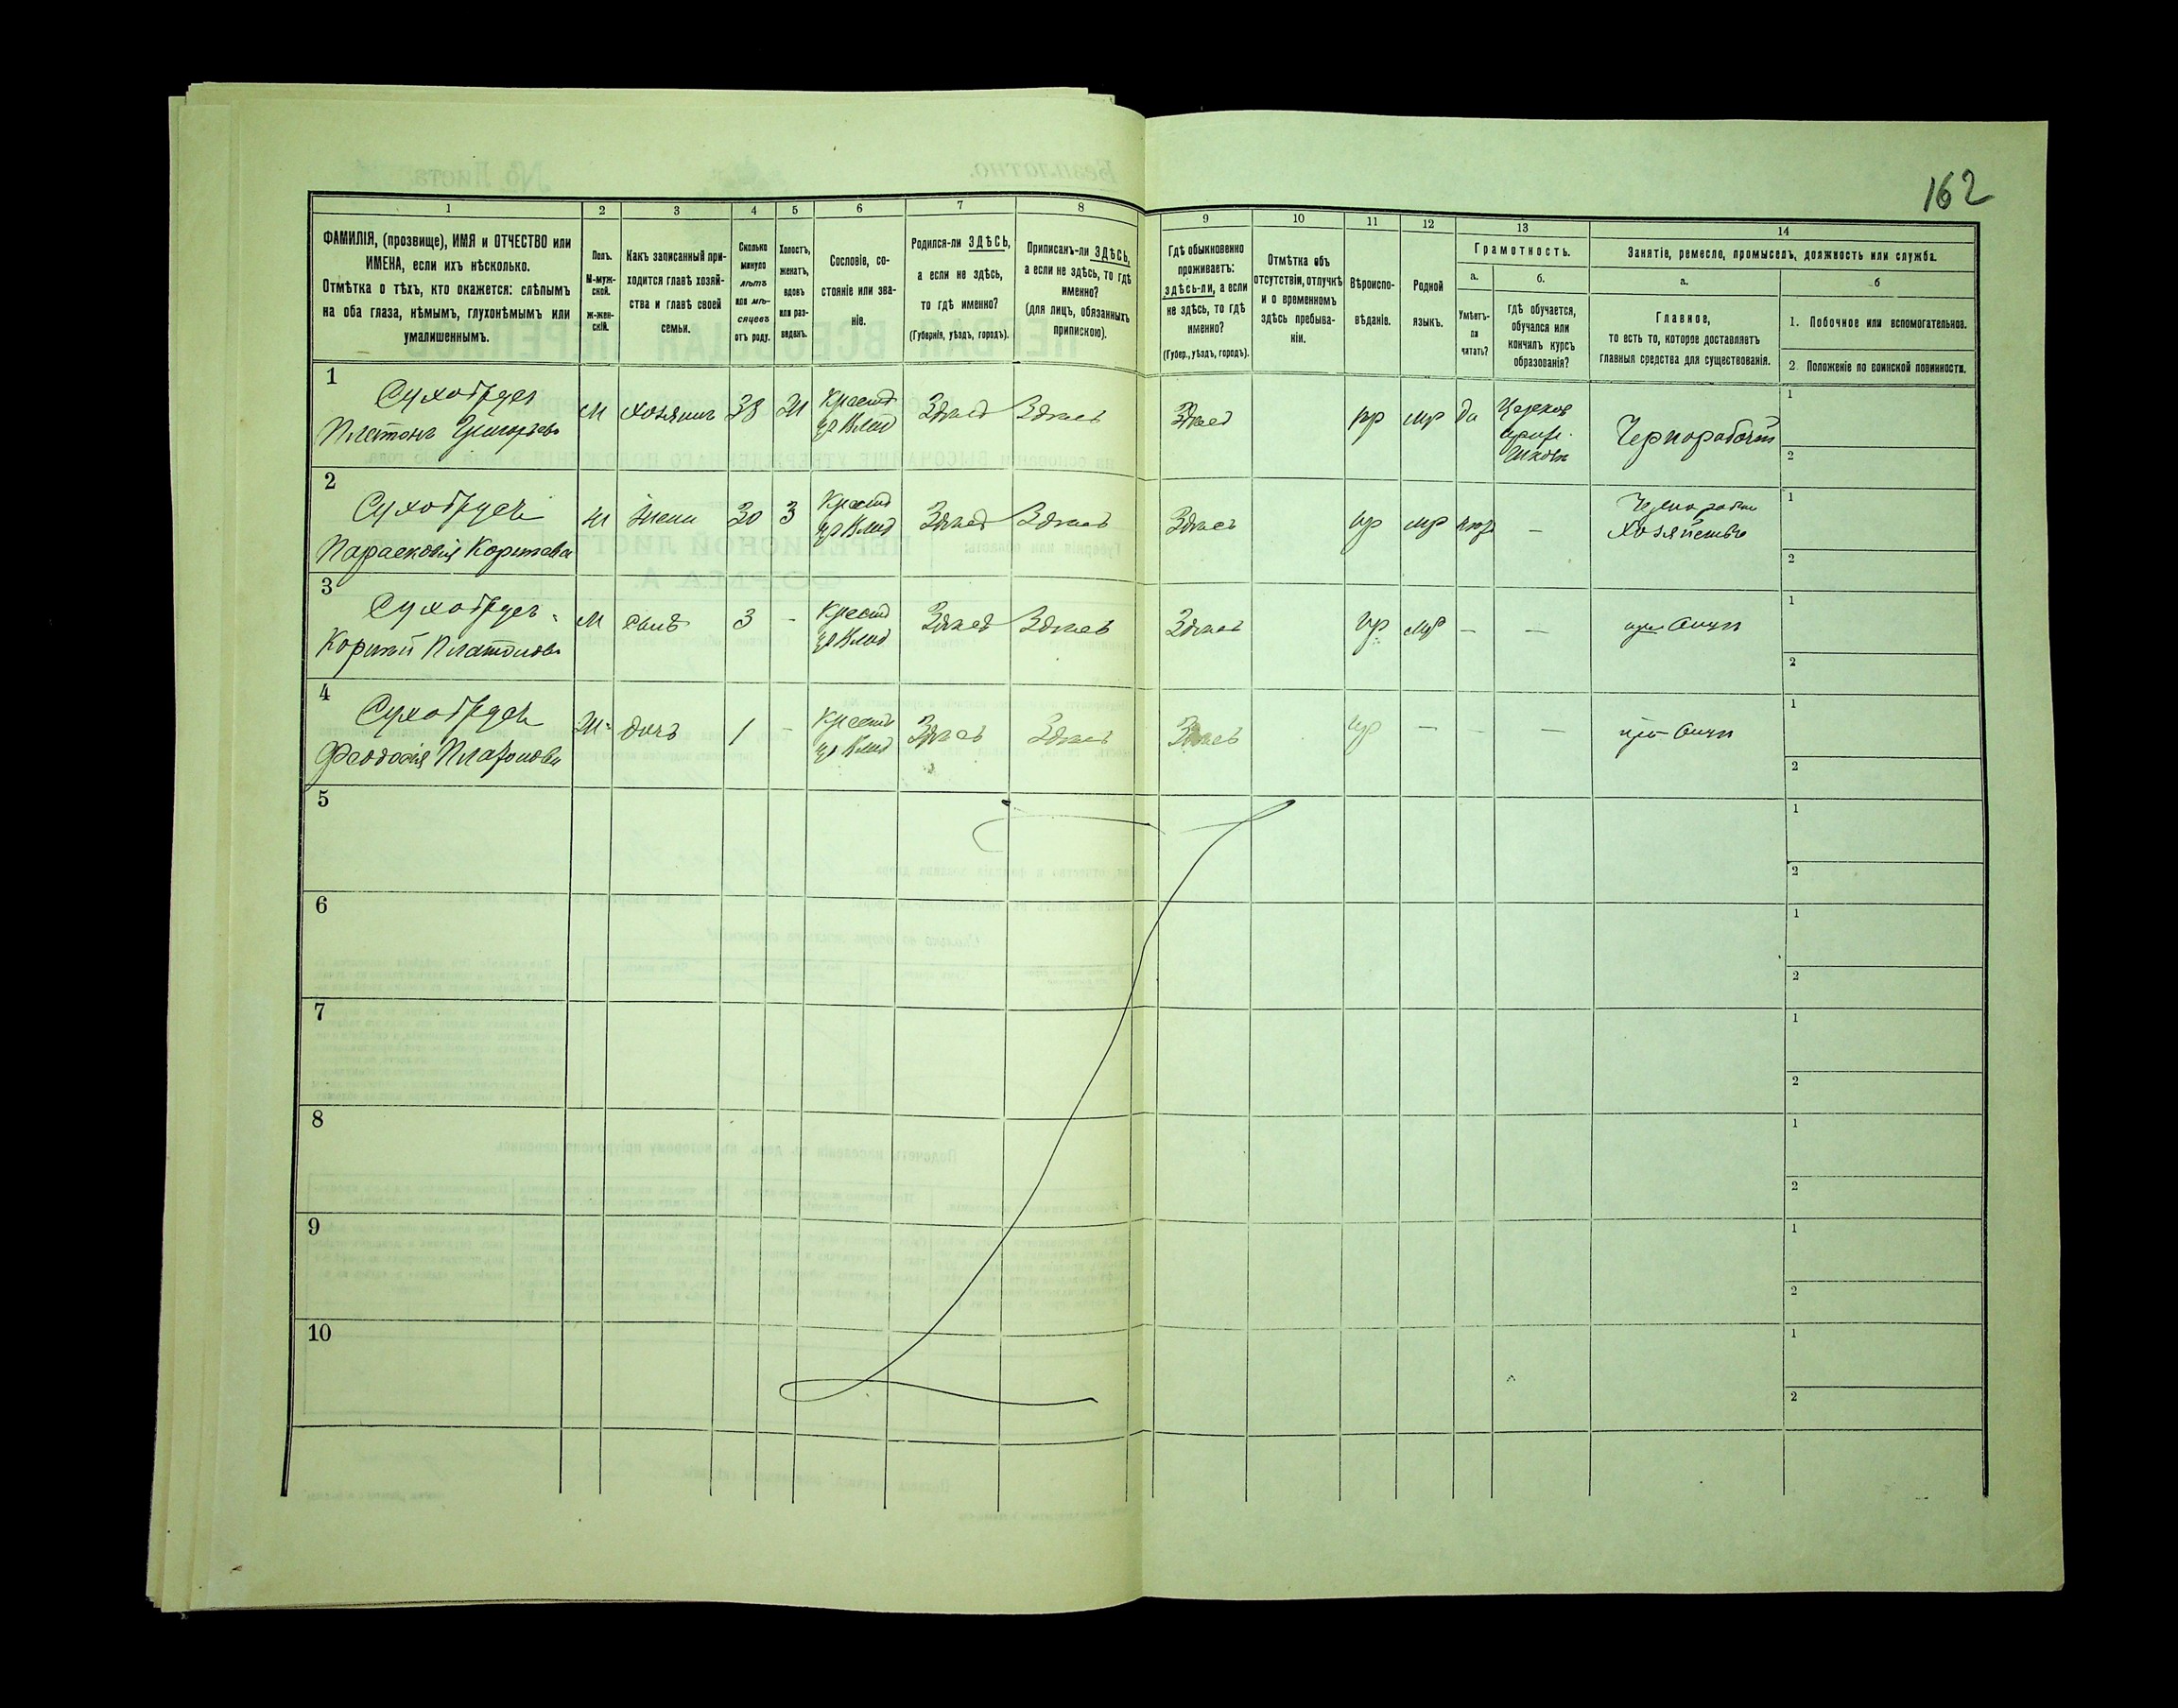 162
1
2
3
4
5
6
7
8
9
10
11
12
13
14
ФАМИЛІЯ, (прозвище), ИМЯ и ОТЧЕСТВО или
ИМЕНА, если ихъ нѣсколько.
Отмѣтка о тѣхъ, кто окажется: слѣпымъ
на оба глаза, нѣмымъ, глухонѣмымъ или
умалишеннымъ.
Полъ.
М-муж-
ской.
ж-жен-
скій.
Какъ записанный при-
ходится главѣ хозяй-
ства и главѣ своей
семьи.
Сколько
минуло
лѣтъ
или мѣ-
сяцевъ
отъ роду.
Холостъ,
женатъ,
вдовъ
или раз-
веденъ.
Сословіе, со-
стояніе или зва-
ніе.
Родился-ли ЗДѢСЬ,
а если не здѣсь,
то гдѣ именно?
(Губернія, уѣздъ, городъ).
Приписанъ-ли ЗДѢСЬ,
а если не здѣсь, то гдѣ
именно?
(для лицъ, обязанныхъ
припискою).
Гдѣ обыкновенно
проживаетъ:
здѣсь-ли, а если
не здѣсь, то гдѣ
именно?
(Губер., уѣздъ, городъ).
Отмѣтка объ
отсутствіи, отлучкѣ
и о временномъ
здѣсь пребыва-
ніи.
Вѣроиспо-
вѣданіе.
Родной
языкъ.
Грамотность.
а.
б.
Умѣетъ-
ли
читать?
гдѣ обучается,
обучался или
кончилъ курсъ
образованія?
Занятіе, ремесло, промыселъ, должность или служба.
а.
б
Главное,
то есть то, которое доставляетъ
главныя средства для существованія.
1. Побочное или вспомогательное.
2. Положеніе по воинской повинности.
1
Сухогрудъ
Платонъ Григорьевъ
М хозяинъ 38 Ж Здѣсь Здѣсь Здѣсь пр мр да
Чернорабочій
1
2
2
Сухогрудъ
Параскевія
Ж Жена 30 З Здѣсь Здѣсь Здѣсь пр мр —
Хозяйство
1
2
3
Сухогрудъ
Корнѣй Платоновъ
М сынъ 3 - Здѣсь Здѣсь Здѣсь пр мр — —
при отцѣ
1
2
4
Сухогрудъ
Феодосія Платонова
Ж дочь 1 - Здѣсь Здѣсь Здѣсь пр — — —
при отцѣ
1
2
5
1
2
6
1
2
7
1
2
8
1
2
9
1
2
10
1
2